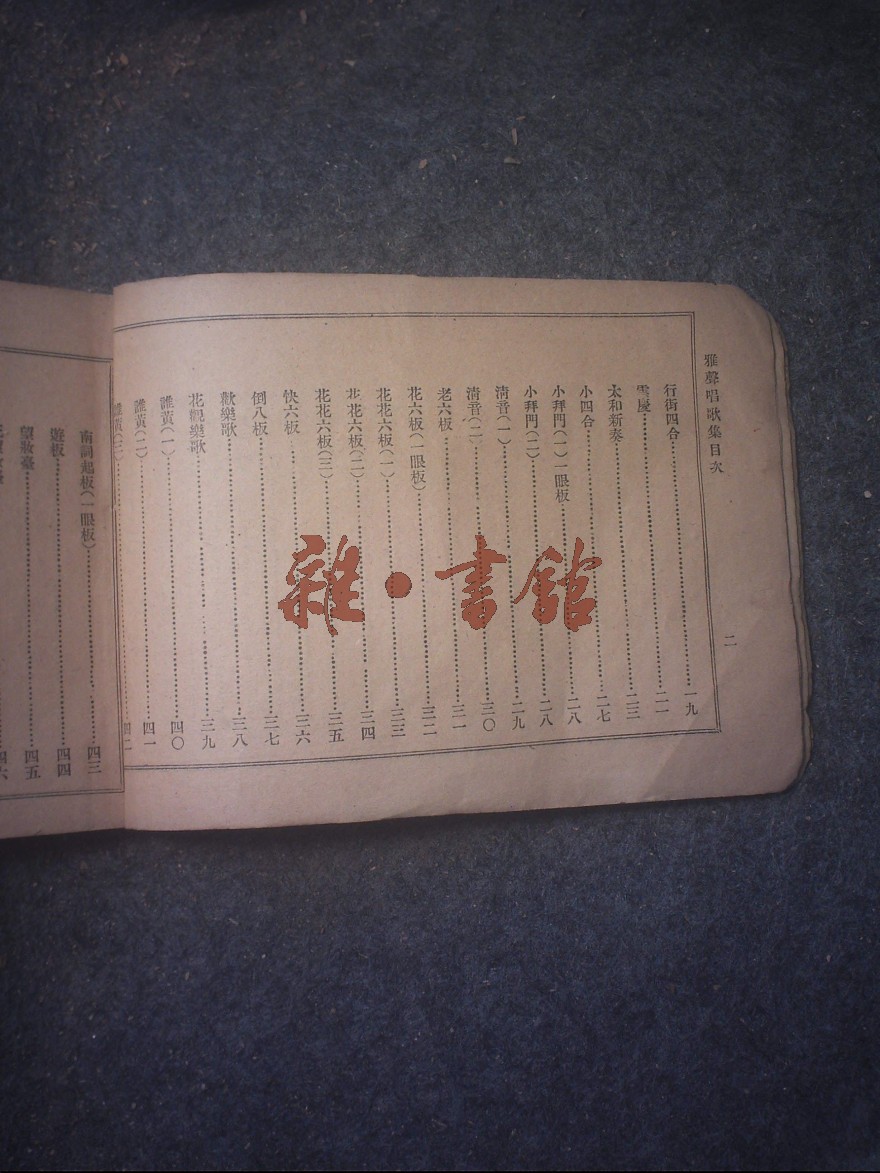 雅聲唱歌集目次
二
行街四合…………一九
雲慶…………二一
太和新奏…………二三
小四合…………二七
小拜門(一)一眼板…………二八
小拜門(二)…………二九
清音(一)…………三〇
清音(二)…………三一
老六板…………三二
花六板(一眼板)…………三三
花花六板(一)…………三四
花花六板(二)…………三五
花花六板(三)…………三六
快六板…………三七
倒八板…………三八
歡樂歌…………三九
花歡樂歌…………四〇
誰黃(一)…………四一
誰黃(二)…………四二
誰黃(三)
南詞起板(一眼板)…………四三
遊板…………四四
望妝臺…………四五
四六
雜•書館